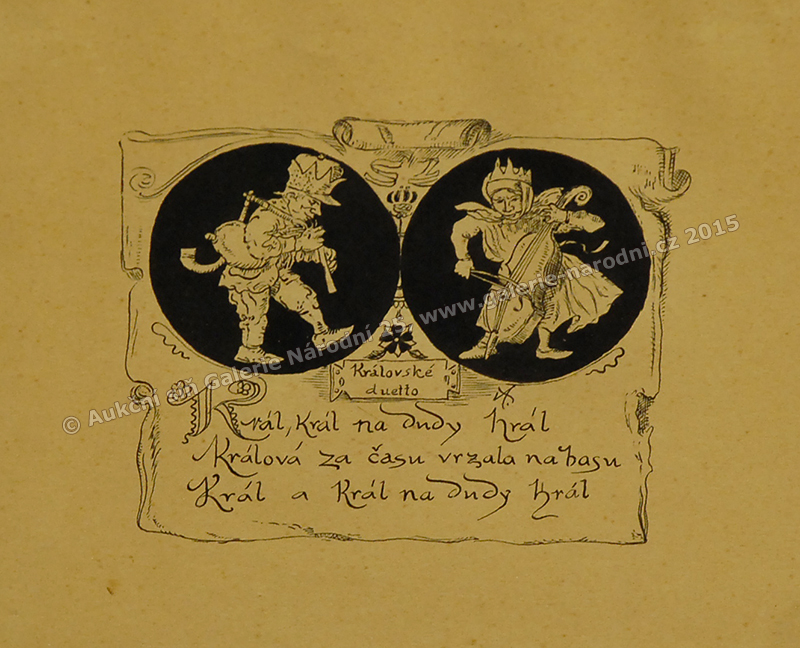 Královské
duetto
Král, Král na dudy hrál
Králová za času vrzala na basu
Král a Král na dudy hrál
© Aukční dům Galerie Národní 25, www.galerie-narodni.cz 2015